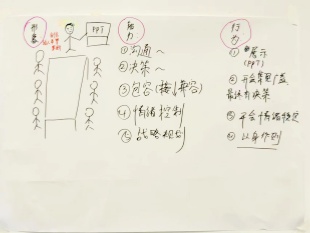 形象
PPT
能力
①沟通~
②决策~
③包容(接/兼容)
④情绪控制
⑤战略规划
行为
①展示
(PPT)
②开会集思广益
最终有决策
③开会情绪稳定
④以身作则